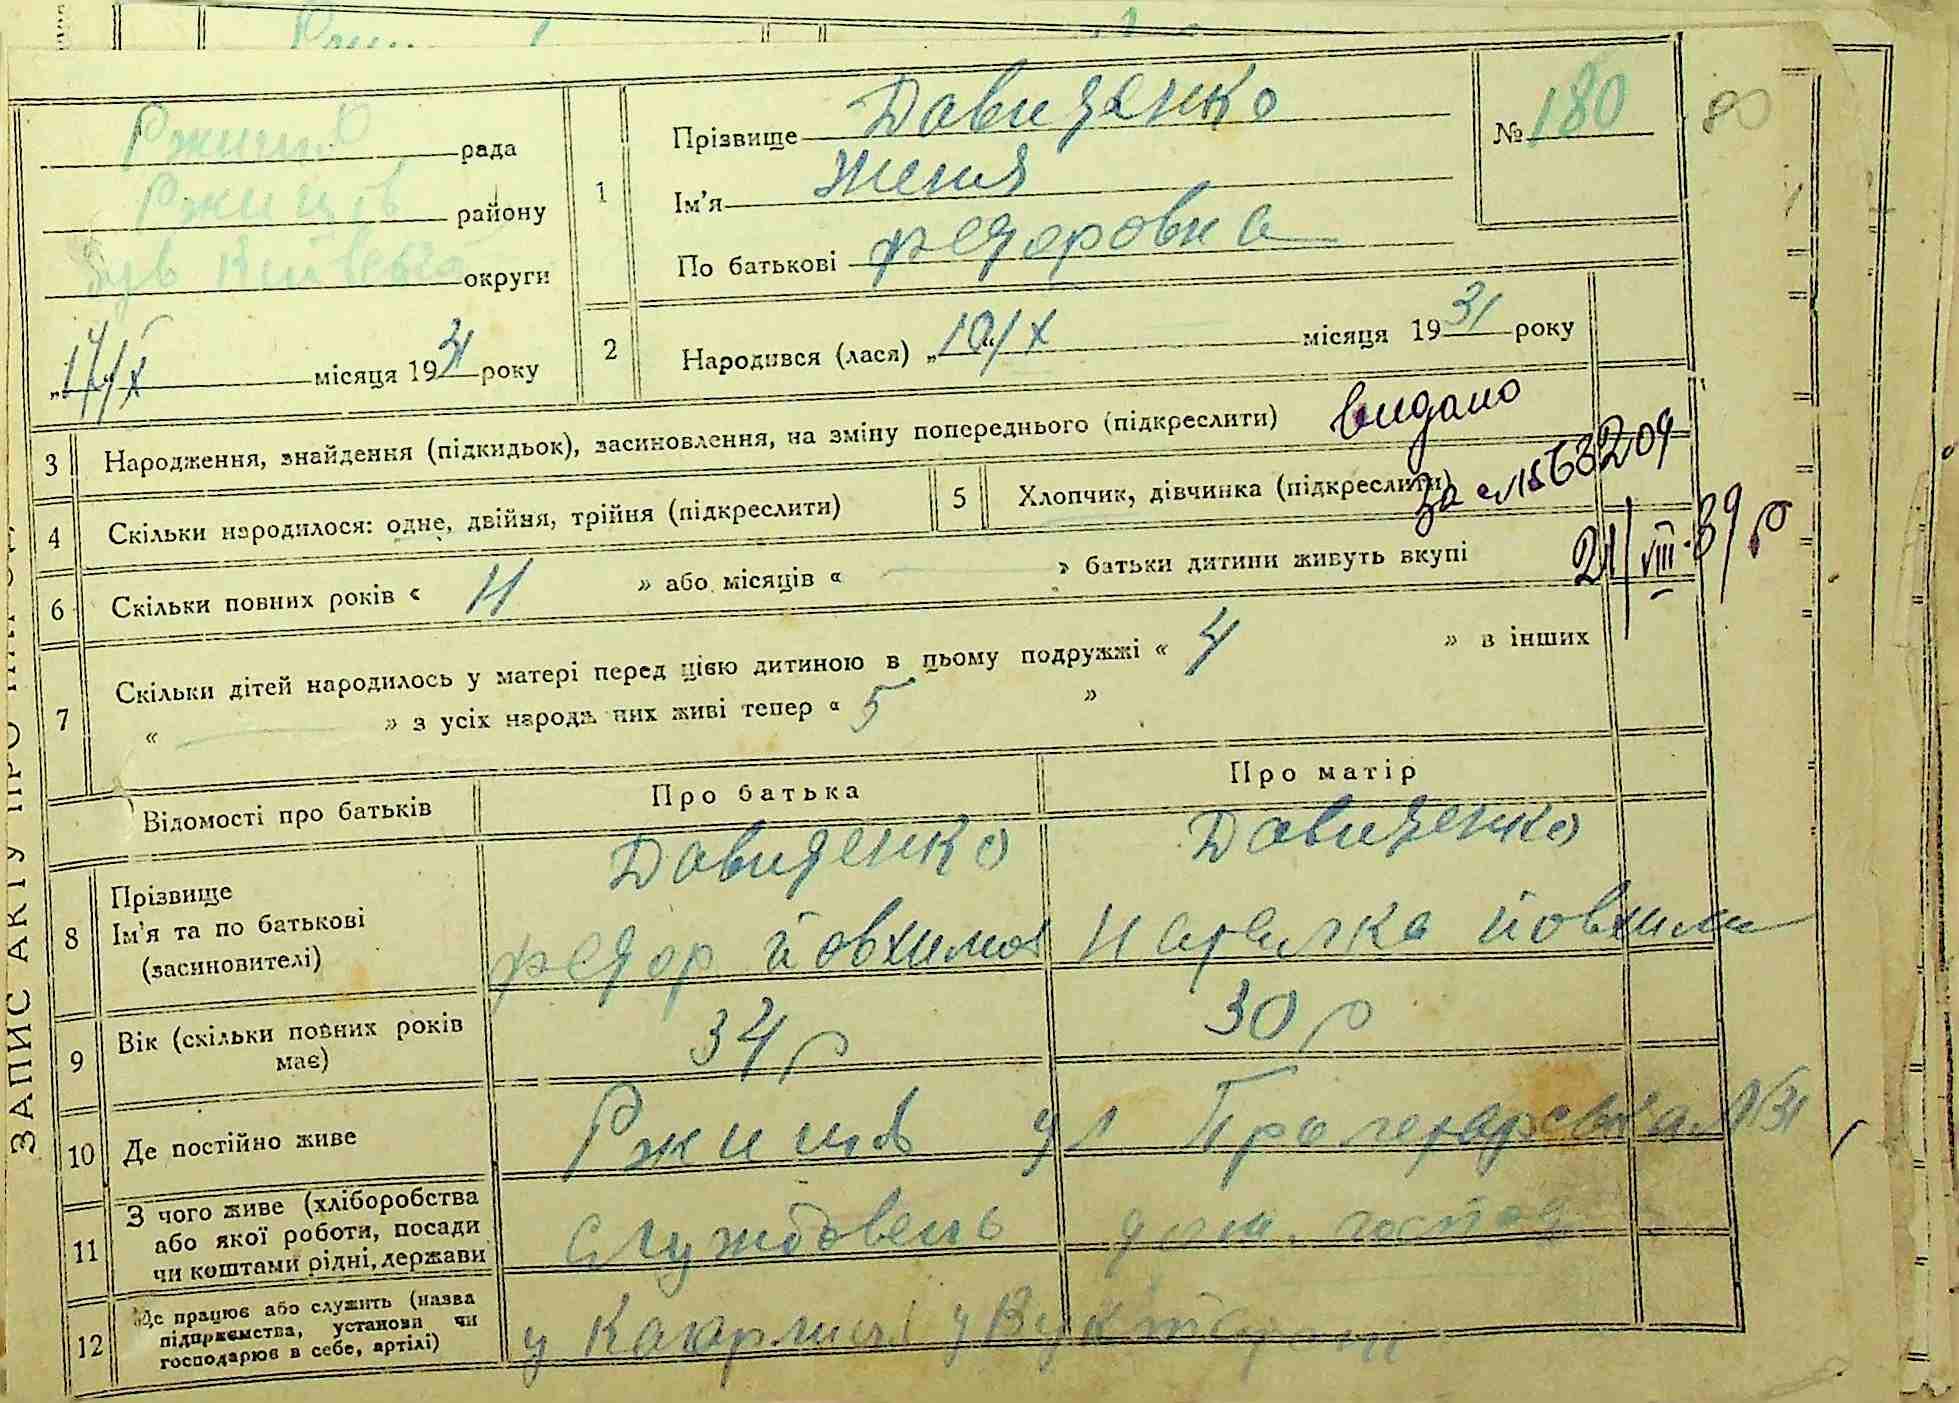 № 180
80
рада
Ржищів району
був Київська округи
"17/X місяця 1931 року
1
Прізвище Давиденко
Ім'я Женя
По батькові Федоровна
2
Народився (лася) „10/X місяця 1931 року
3 Народження, знайдення (підкидьок), засиновлення, на зміну попереднього (підкреслити)
видано
4 Скільки народилося: одне, двійня, трійня (підкреслити)
5 Хлопчик, дівчинка (підкреслити)
за
21/VIII-39 р
6 Скільки повних років « 11 » або місяців « — » батьки дитини живуть вкупі
7 Скільки дітей народилось у матері перед цією дитиною в цьому подружжі « 4 » в інших
« — » з усіх народж них живі тепер « 5 »
Відомості про батьків Про батька Про матір
8 Прізвище
Ім'я та по батькові
(засиновителі)
Давиденко Давиденко
Федор Йовхимов Наталка Йовхими
9 Вік (скільки повних років
має)
34 р 30 р
10 Де постійно живе Ржищів ул Пролетарська №31
11 З чого живе (хліборобства
або якої роботи, посади
чи коштами рідні, держави
службовець дом. господ
12 Де працює або служить (назва
підприємства, установи чи
господарює в себе, артілі)
у Кагарлиці у
ЗАПИС АКТУ ПРО